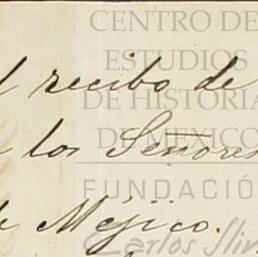 CENTRO DE
ESTUDIOS
l recibo de
DE HISTORIA
DE MEXICO
los Señores
FUNDACIÓ
de Méjico.
Carlos Sli